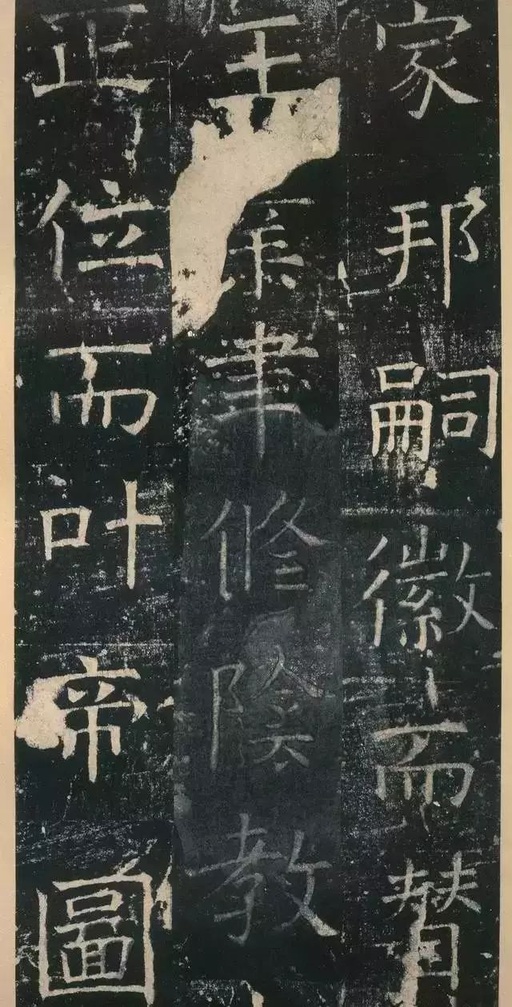 家邦嗣徽而贊
王聿修陰教
正位而叶帝圖